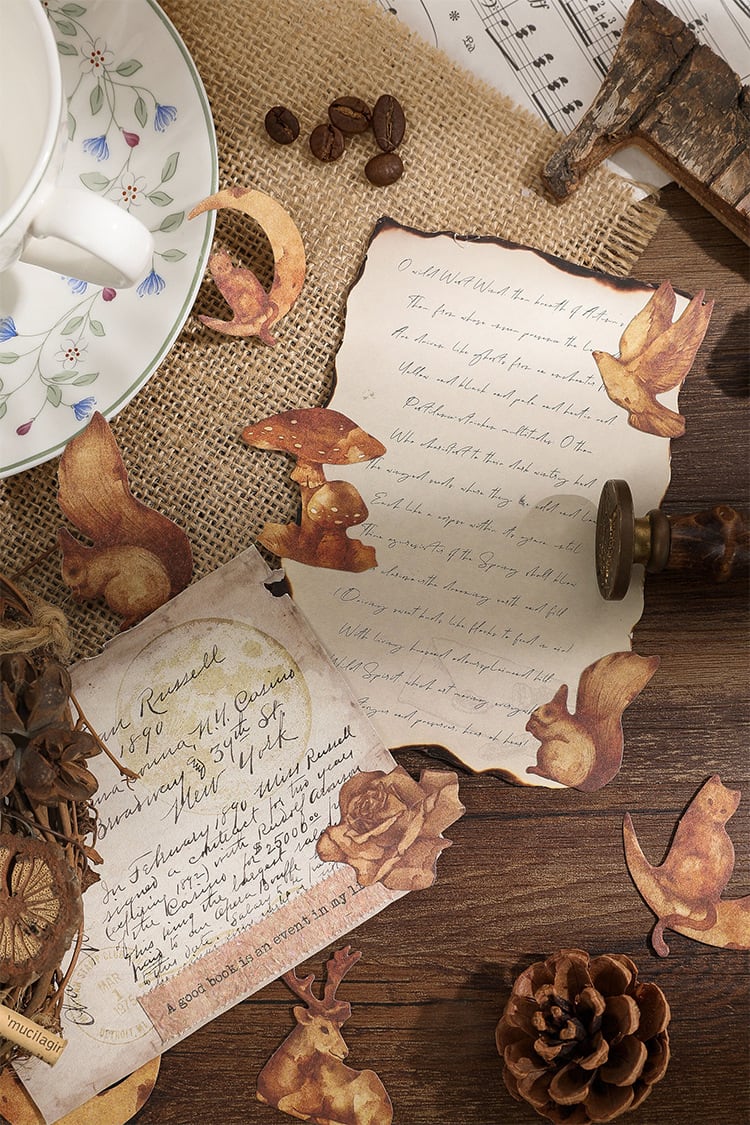 Ped
O wild West Wind, thou breath of Autumn's
Thou from whose unseen presence the
Are driven like ghosts from an enchanter
Yellow and black and pale and hectic red
Pestilence-stricken multitudes O thou
Who chariotest to their dark wintry bed
The winged seeds where they lie cold and low
Each like a corpse within its grave until
Thine azure sister of the Spring shall blow
clarion o'er the dreaming earth and fill
(Driving sweet buds like flocks to feed in air
With living hues and odours plain and hill
Wild Spirit which art moving everywhere
and preserver hear oh hear!
Russell
1890
N.Y. Casino
Broadway & 39th St
New York
In February 1890 Miss Russell
signed a contract for two years
(expiring 1892) with Rudolf Aronson
of the Casino for $25000.00
this being the largest salary
paid to an Opera Bouffe
to this date
A good book is an event in my li
MAR
1
1975
DETROIT, MI
'mucilagin